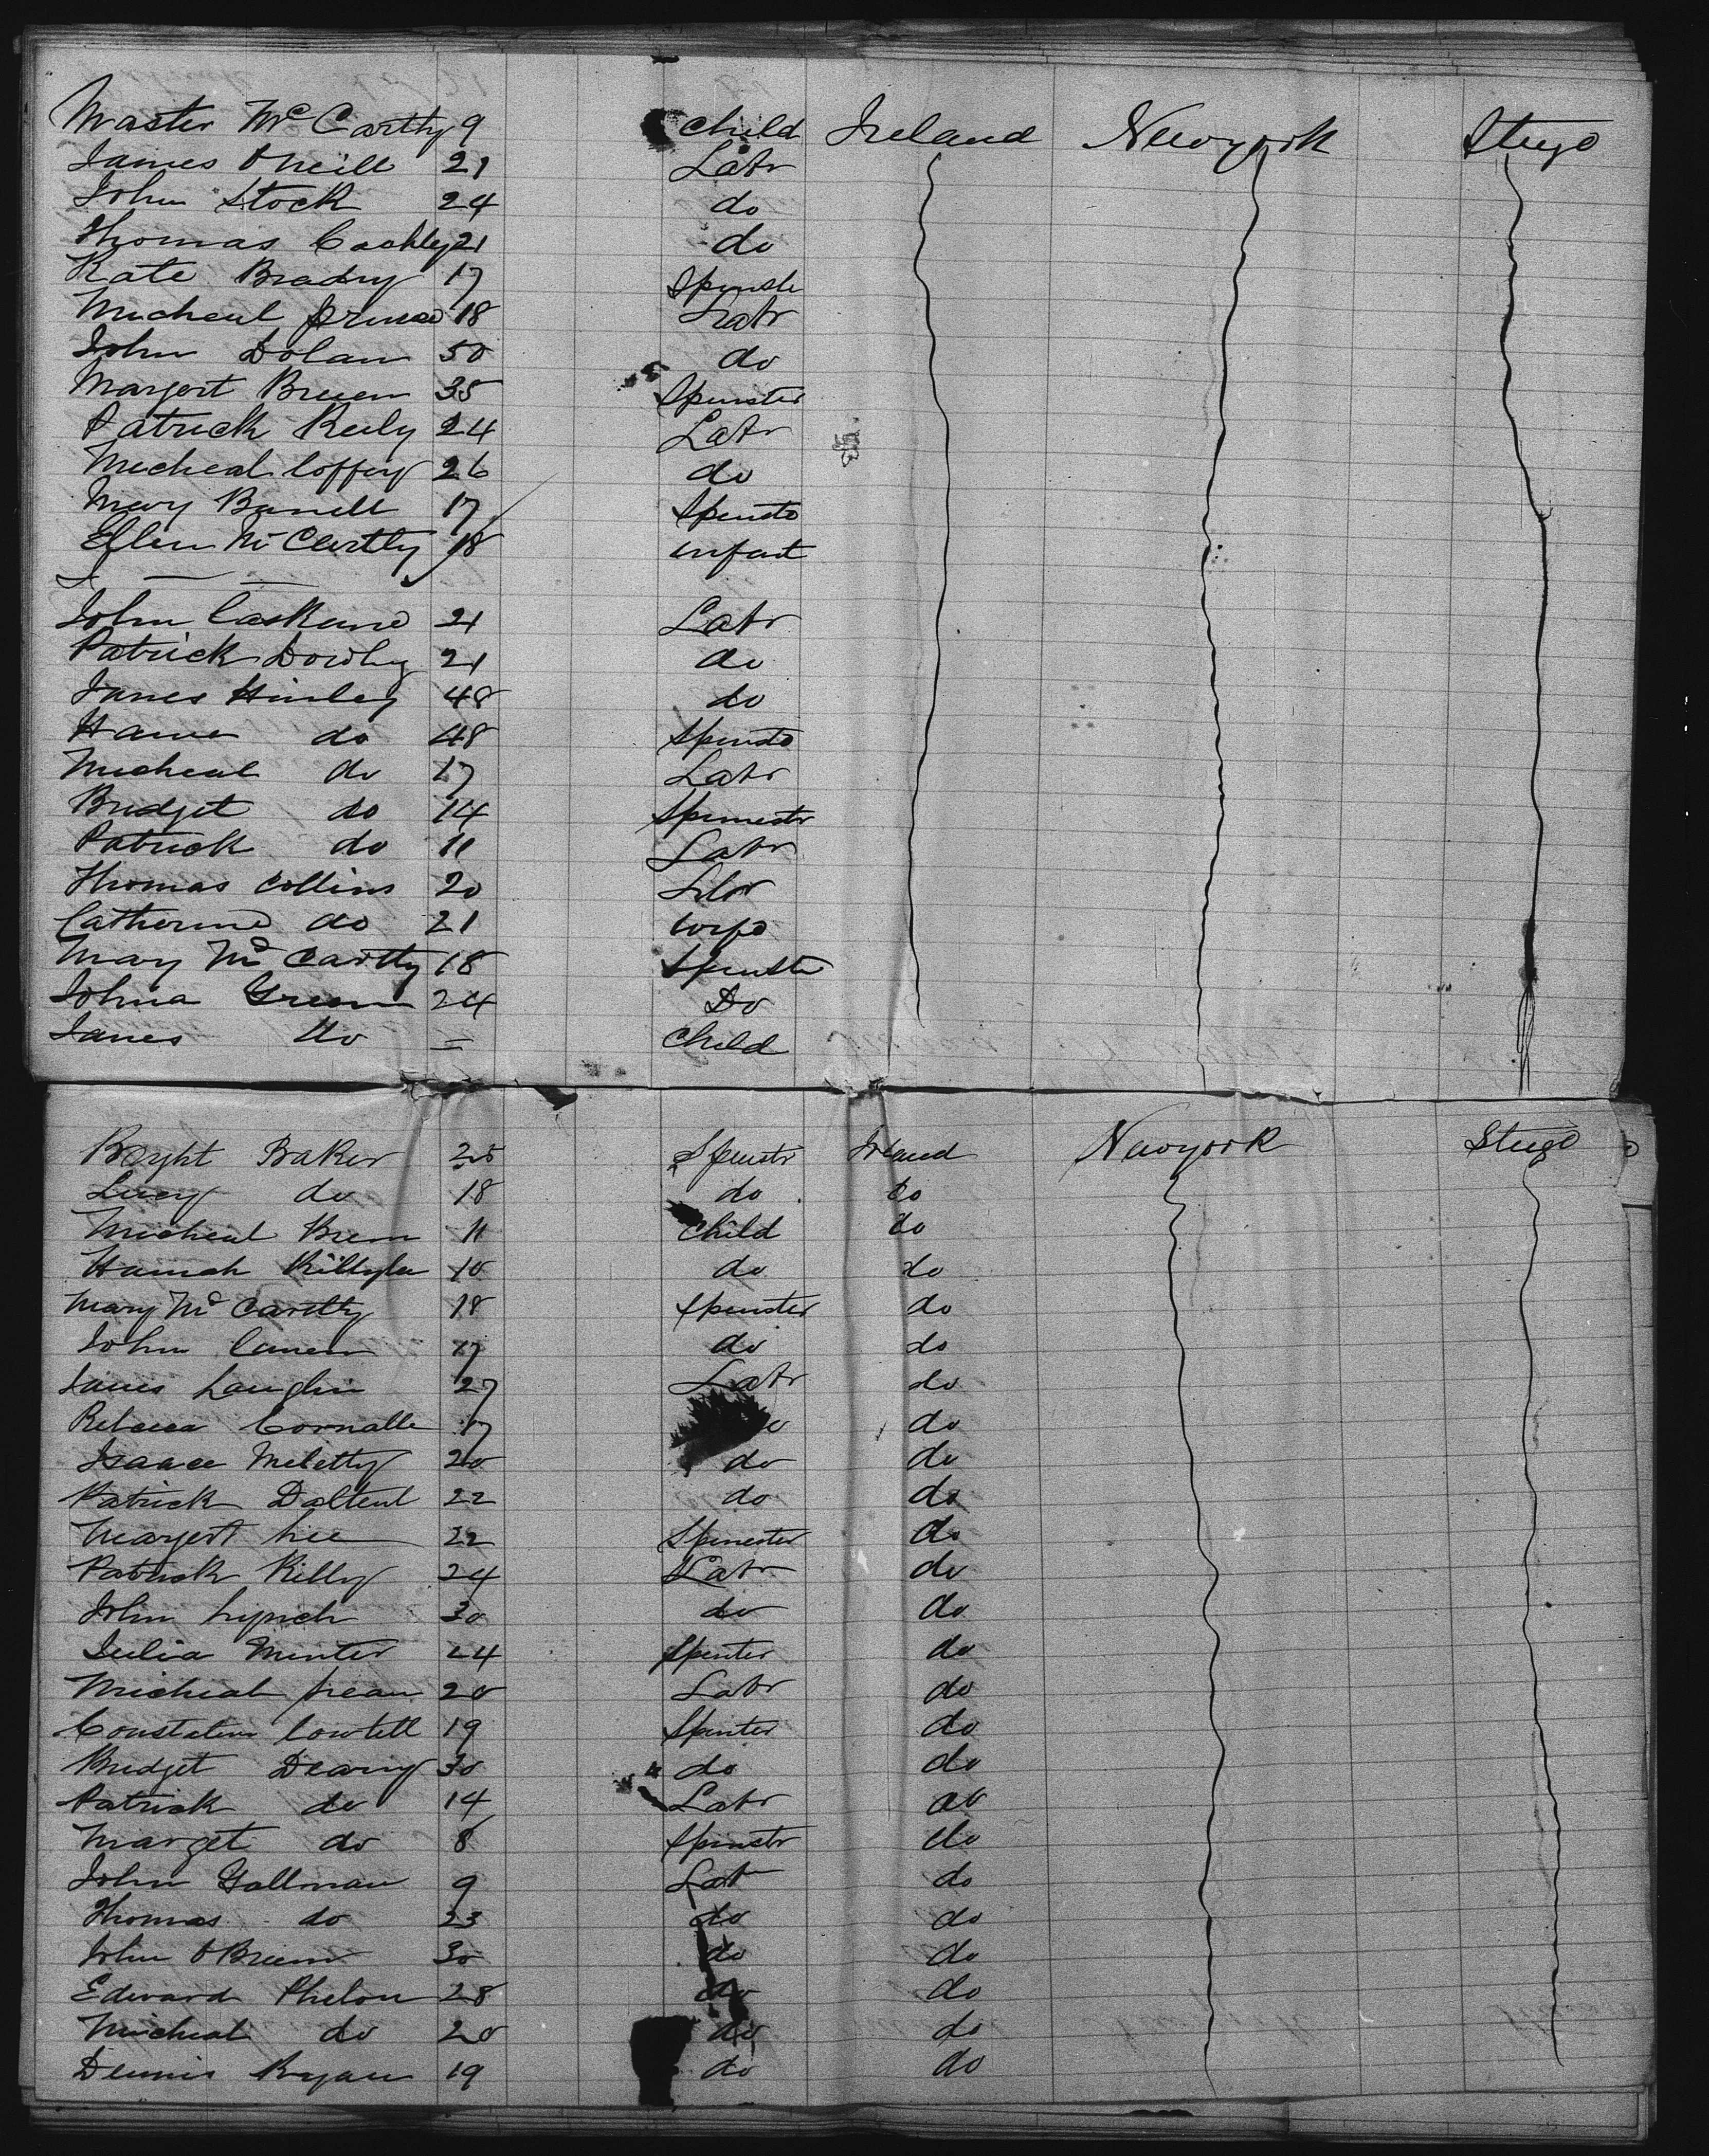 Master McCarthy 9 Child Ireland Newyork Stege
James ONeill 21 Labr
John Stock 24 do
Thomas 21 do
Kate Brady 17 Spinste
Micheal 18 Labr
John Dolan 50 do
Margert Breen 35 Spinster
Patrick Reily 24 Labr
Micheal Coffey 26 do
Mary 17 Spinste
Ellen McCartty 18 infant
John Caskane 21 Labr
Patrick Dowly 21 do
James Hurley 48 do
do 48 Spinste
Micheal do 17 Labr
Bridget do 14 Spinestr
Patrick do 11 Labr
Thomas Collins 20 Labr
Catherine do 21 wife
Mary McCartty 18 Spinste
Johna Green 24 Do
James do = Child
Baker 20 Spinstr Ireland Newyork Stege
Lucy do 18 do do
Micheal 11 Child do
Hannah 10 do do
Mary McCartty 18 Spinster do
John 17 do do
James Laughin 27 Labr do
Rebecca Cornalle 17 do
Isaace Meletty 20 do do
Patrick 22 do do
Margert Lee 22 Spinester do
Patrick Killy 24 Labr do
John Lynch 30 do do
Julia Minter 24 Spinter do
Micheal 20 Labr do
19 Spinter do
Bridget Deary 30 do do
Patrick do 14 Labr do
Marget do 8 Spinstr do
John Gallman 9 Lab do
Thomas do 23 do do
John OBrien 30 do do
Edward Phelon 28 do do
Micheal do 20 do do
Dennis Ryan 19 do do